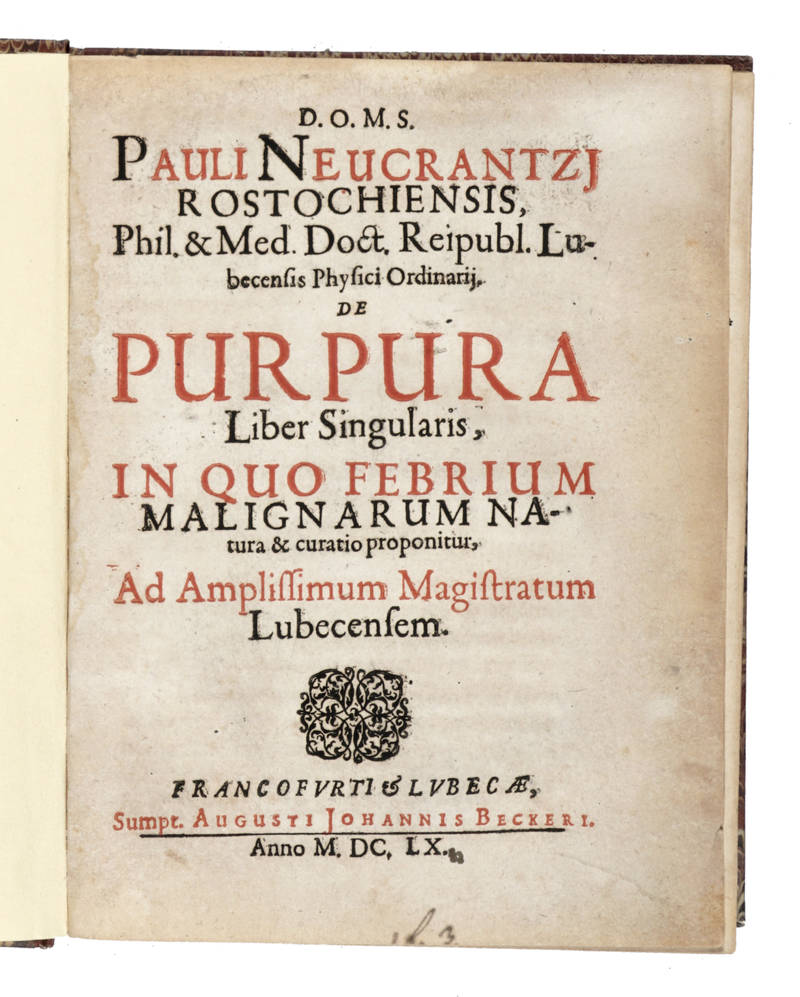 D. O. M. S.
PAULI NEUCRANTZJ
ROSTOCHIENSIS,
Phil. & Med. Doct. Reipubl. Lu-
becenſis Phyſici Ordinarij,
DE
PURPURA
Liber Singularis,
IN QUO FEBRIUM
MALIGNARUM NA-
tura & curatio proponitur,
Ad Ampliſſimum Magiſtratum
Lubecenſem.
FRANCOFVRTI & LVBECÆ,
Sumpt. AUGUSTI JOHANNIS BECKERI.
Anno M. DC. LX.